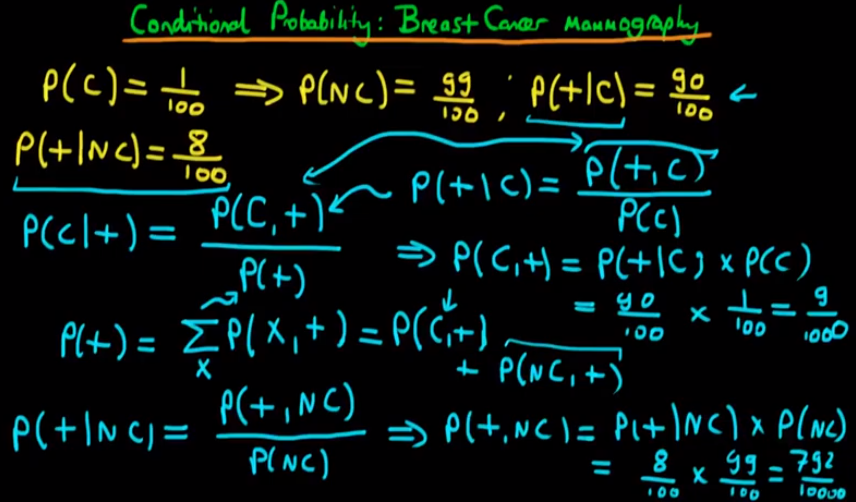 Conditional Probability: Breast Cancer Mammography
P(C) = 1/100 ⇒ P(NC) = 99/100 ; P(+|C) = 90/100 ←
P(+|NC) = 8/100
P(+|C) = P(+,C)/P(C)
P(C|+) = P(C,+)/P(+)
⇒ P(C,+) = P(+|C) × P(C)
= 90/100 × 1/100 = 9/1000
P(+) = ∑x P(X,+) = P(C,+)
+ P(NC,+)
P(+|NC) = P(+,NC)/P(NC) ⇒ P(+,NC) = P(+|NC) × P(NC)
= 8/100 × 99/100 = 792/10000